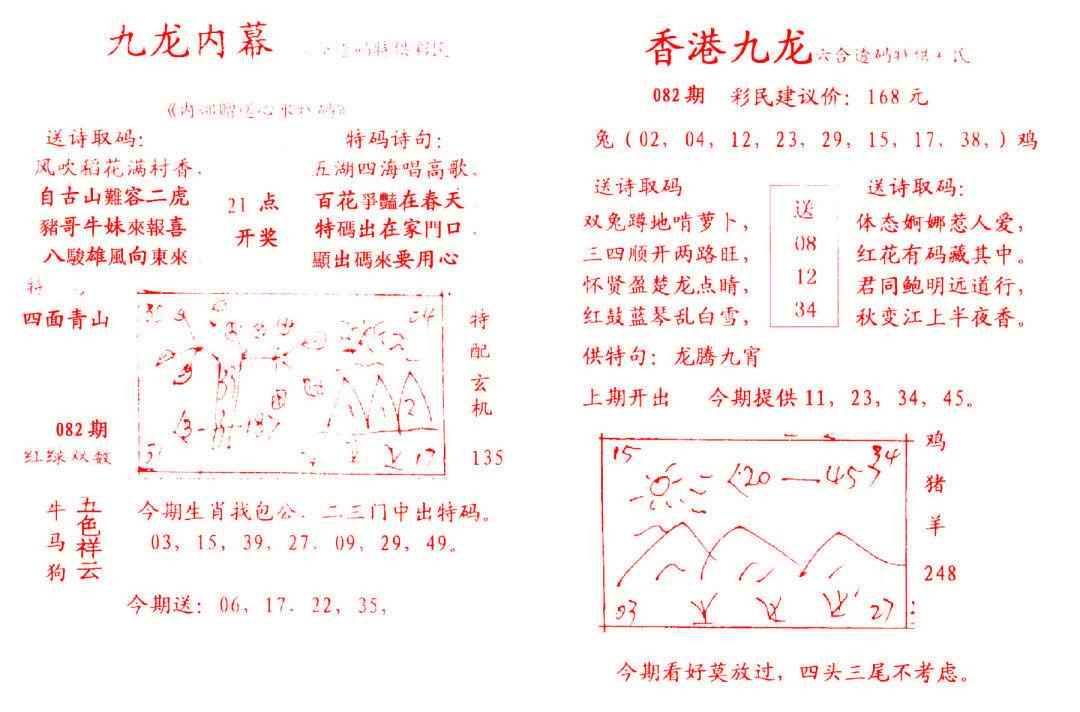 九龙内幕
送诗取码：
风吹稻花满村香．
自古山難容二虎
豬哥牛妹來報喜
八駿雄風向東來．
21 点
开奖
特码诗句：
五湖四海唱高歌．
百花爭豔在春天
特碼出在家門口
顯出碼來要用心
四面青山
34
特配玄机
135
082期
红绿双数
13
牛
马
狗
五色祥云
今期生肖找包公．二三门中出特码。
03，15，39，27．09，29，49。
今期送：06，17．22，35，
香港九龙
082期 彩民建议价：168元
兔（02，04，12，23，29，15，17，38，）鸡
送诗取码
双兔蹲地啃萝卜，
三四顺开两路旺，
怀贤盈楚龙点睛，
红鼓蓝琴乱白雪，
送
08
12
34
送诗取码：
体态婀娜惹人爱，
红花有码藏其中。
君同鲍明远道行，
秋变江上半夜香。
供特句：龙腾九宵
上期开出 今期提供11，23，34，45。
15
34
20—45
03
27
鸡
猪
羊
248
今期看好莫放过，四头三尾不考虑。